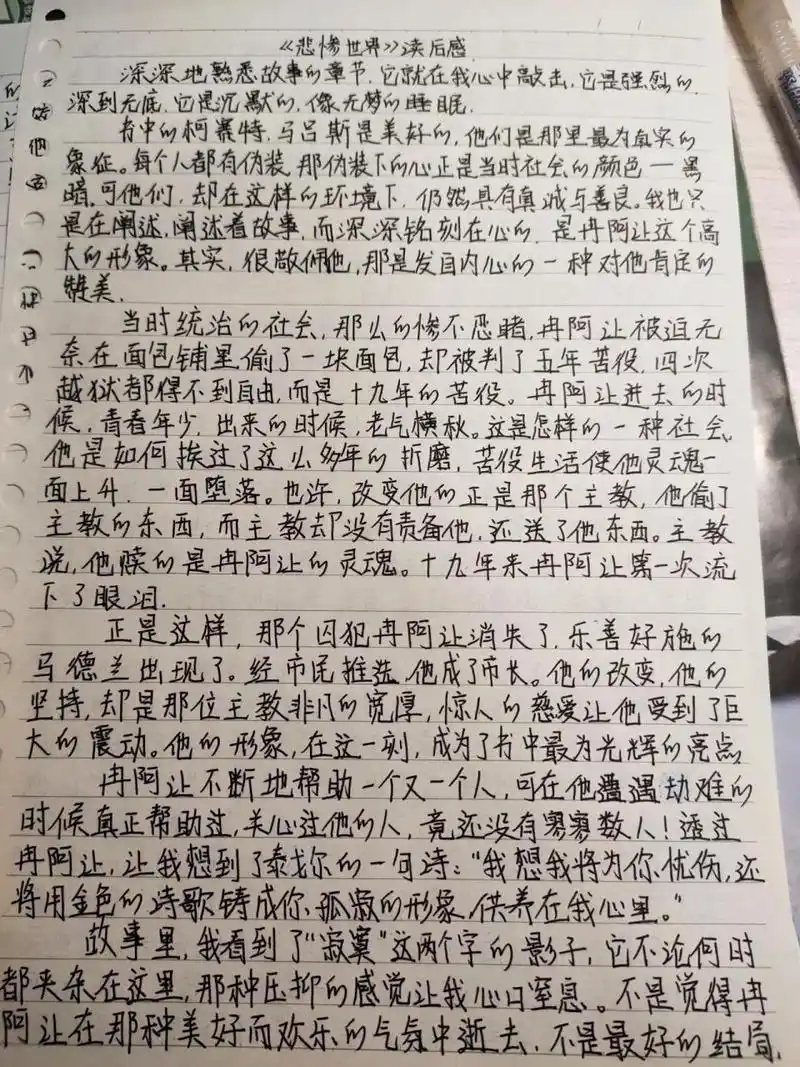 《悲惨世界》读后感
深深地熟悉故事的章节,它就在我心中敲击,它是强烈的,
深到无底,它是沉默的,像无梦的睡眠.
书中的柯赛特,马吕斯是美好的,他们是那里最为真实的
象征。每个人都有伪装,那伪装下的心正是当时社会的颜色一黑
暗,可他们,却在这样的环境下,仍然具有真诚与善良。我也只
是在阐述,阐述着故事,而深深铭刻在心的,是冉阿让这个高
大的形象。其实,很敬佩他,那是发自内心的一种对他肯定的
赞美.
当时统治的社会,那么的惨不忍睹,冉阿让被迫无
奈在面包铺里偷了一块面包,却被判了五年苦役,四次
越狱都得不到自由,而是十九年的苦役。冉阿让进去的时
候,青春年少,出来的时候,老气横秋。这是怎样的一种社会,
他是如何挨过了这么多年的折磨,苦役生活使他灵魂一
面上升,一面堕落。也许,改变他的正是那个主教,他偷了
主教的东西,而主教却没有责备他,还送了他东西。主教
说,他赎的是冉阿让的灵魂。十九年来冉阿让第一次流
下了眼泪.
正是这样,那个囚犯冉阿让消失了,乐善好施的
马德兰出现了。经市民推选,他成了市长。他的改变,他的
坚持,却是那位主教非凡的宽厚,惊人的慈爱让他受到了巨
大的震动。他的形象,在这一刻,成为了书中最为光辉的亮点
冉阿让不断地帮助一个又一个人,可在他遭遇劫难的
时候真正帮助过,关心过他的人,竟还没有寥寥数人!透过
冉阿让,让我想到了泰戈尔的一句诗:"我想我将为你忧伤,还
将用金色的诗歌铸成你孤寂的形象,供养在我心里。"
故事里,我看到了"寂寞"这两个字的影子,它不论何时
都夹杂在这里,那种压抑的感觉让我心口窒息。不是觉得冉
阿让在那种美好而欢乐的气氛中逝去,不是最好的结局,